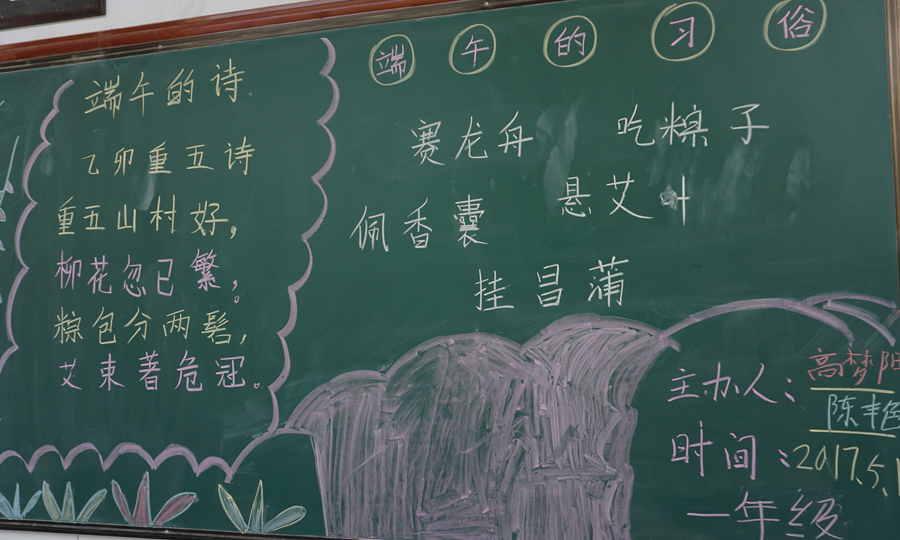 端午的诗
乙卯重五诗
重五山村好，
柳花忽已繁，
粽包分两髻，
艾束著危冠。
端午的习俗
赛龙舟 吃粽子
佩香囊 悬艾叶
挂昌蒲
主办人：高梦阳
陈丰
时间：2017.5.
一年级